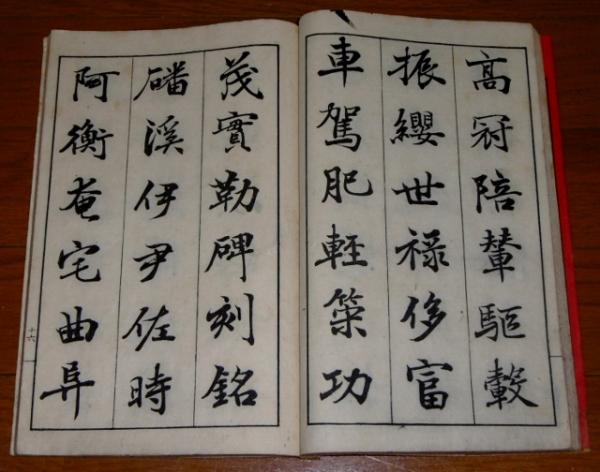 高冠陪輦驅轂
振纓世禄侈富
車駕肥輕策功
茂實勒碑刻銘
磻溪伊尹佐時
阿衡奄宅曲阜
十六